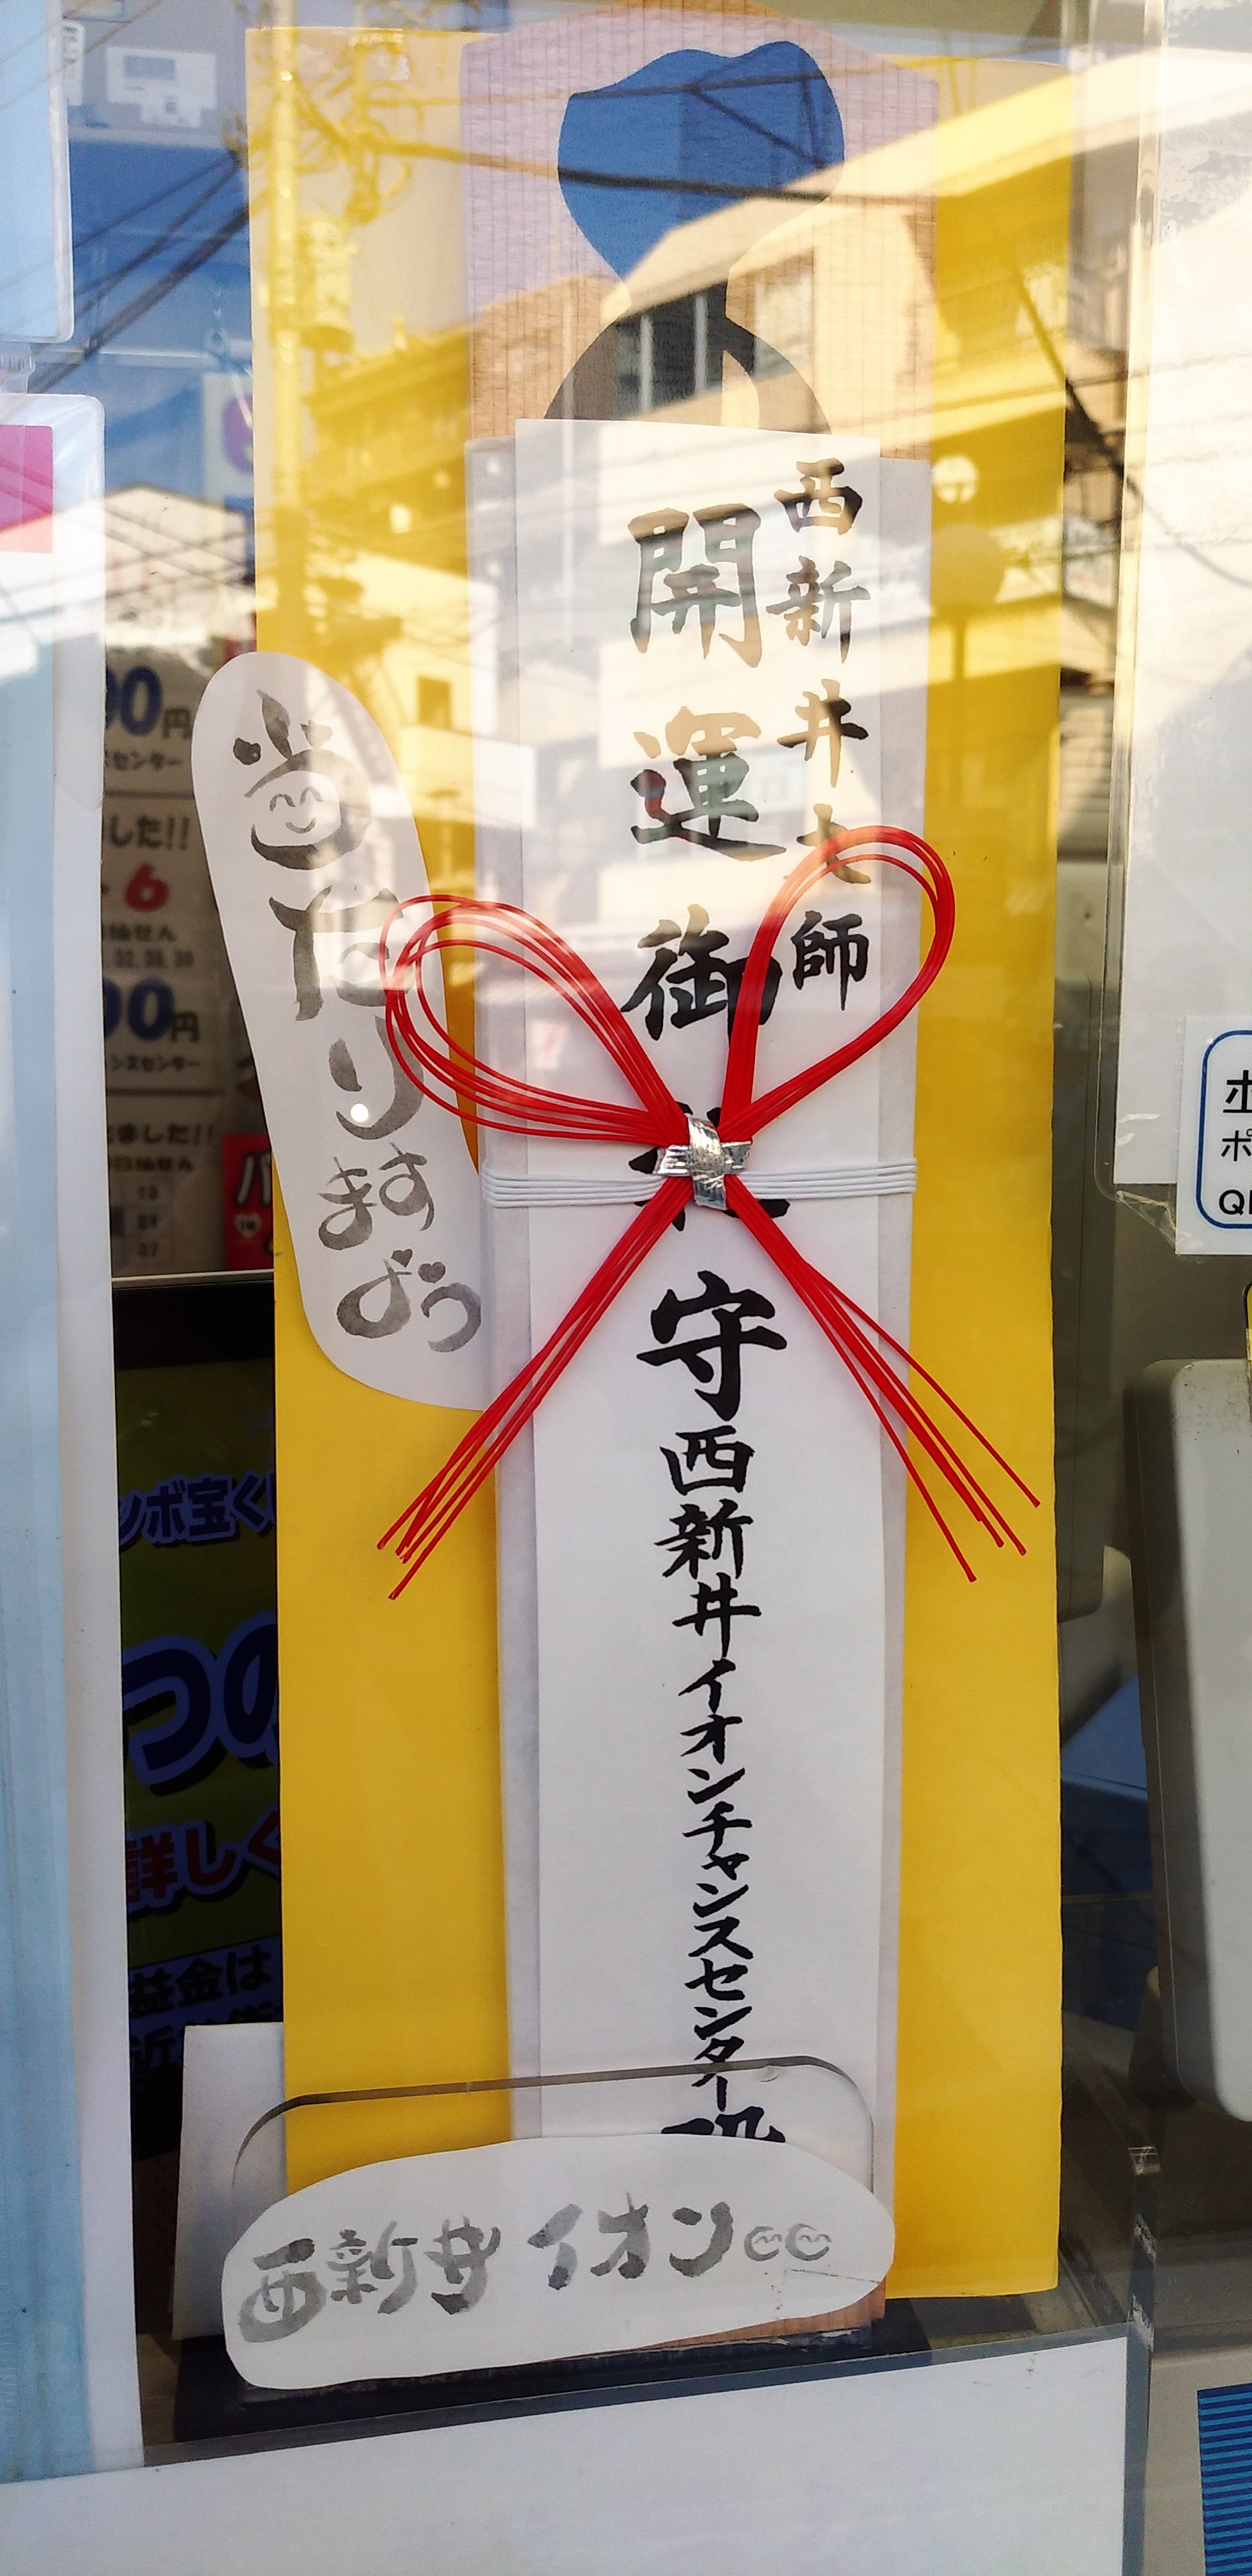 西新井大師
開運御札守
西新井イオンチャンスセンター
当たりますよう
西新井イオン
00円
スセンター
した!!
6
32, 38, 39
00円
ンスセンター
ました!!
13
21
37
ンボ宝く
つの
詳しく
益金は
ポ
QR